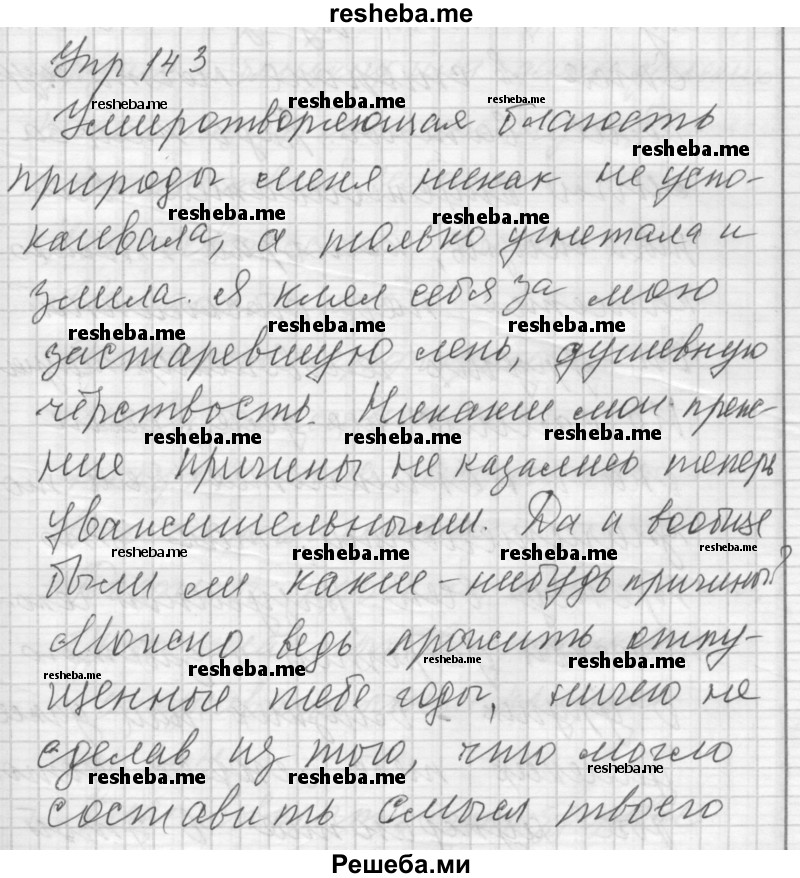 resheba.me
Упр 143
resheba.me resheba.me resheba.me
Умиротворяющая благость
resheba.me
природы меня никак не успо-
resheba.me resheba.me
каивала, а только угнетала и
злила. Я клял себя за мою
resheba.me resheba.me resheba.me
застаревшую лень, душевную
чёрствость. Никакие мои преж-
resheba.me resheba.me resheba.me
ние причины не казались теперь
уважительными. Да и вообще
resheba.me resheba.me resheba.me resheba.me
были ли какие-нибудь причины?
Можно ведь прожить отпу-
resheba.me resheba.me resheba.me resheba.me
щенные тебе годы, ничего не
сделав из того, что могло
resheba.me resheba.me resheba.me
составить смысл твоего
Решеба.ми